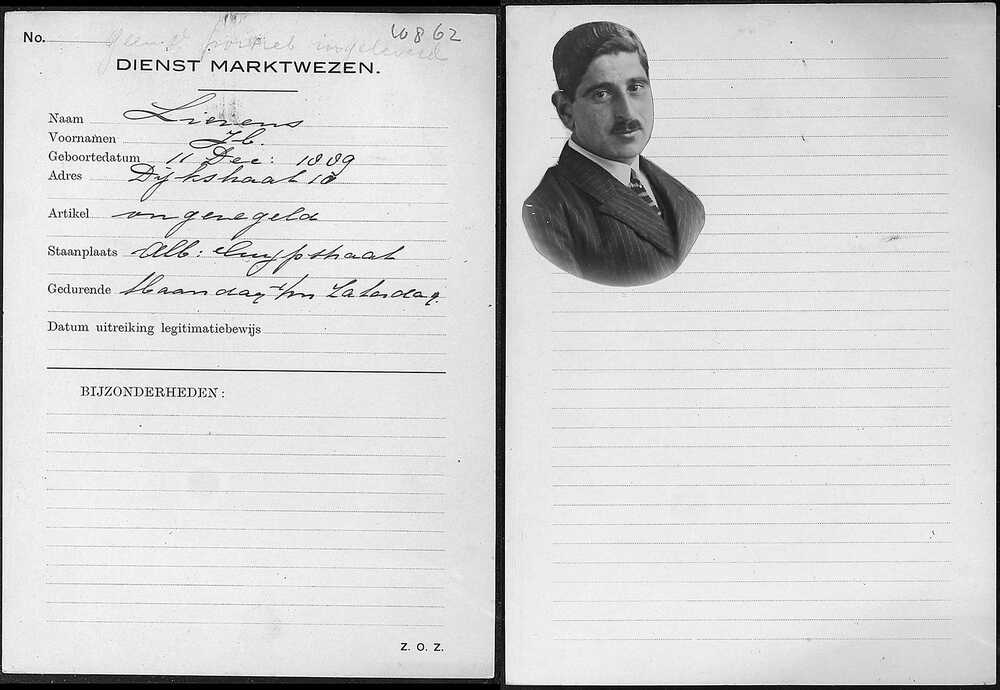 No. 10862
geen portret ingeleverd
DIENST MARKTWEZEN.
Naam Lierens
Voornamen
Geboortedatum 11 Dec: 1889
Adres Dijkstraat 18
Artikel ongeregeld
Staanplaats Alb: Cuypstraat
Gedurende Maandag t/m Zaterdag.
Datum uitreiking legitimatiebewijs
BIJZONDERHEDEN:
Z. O. Z.